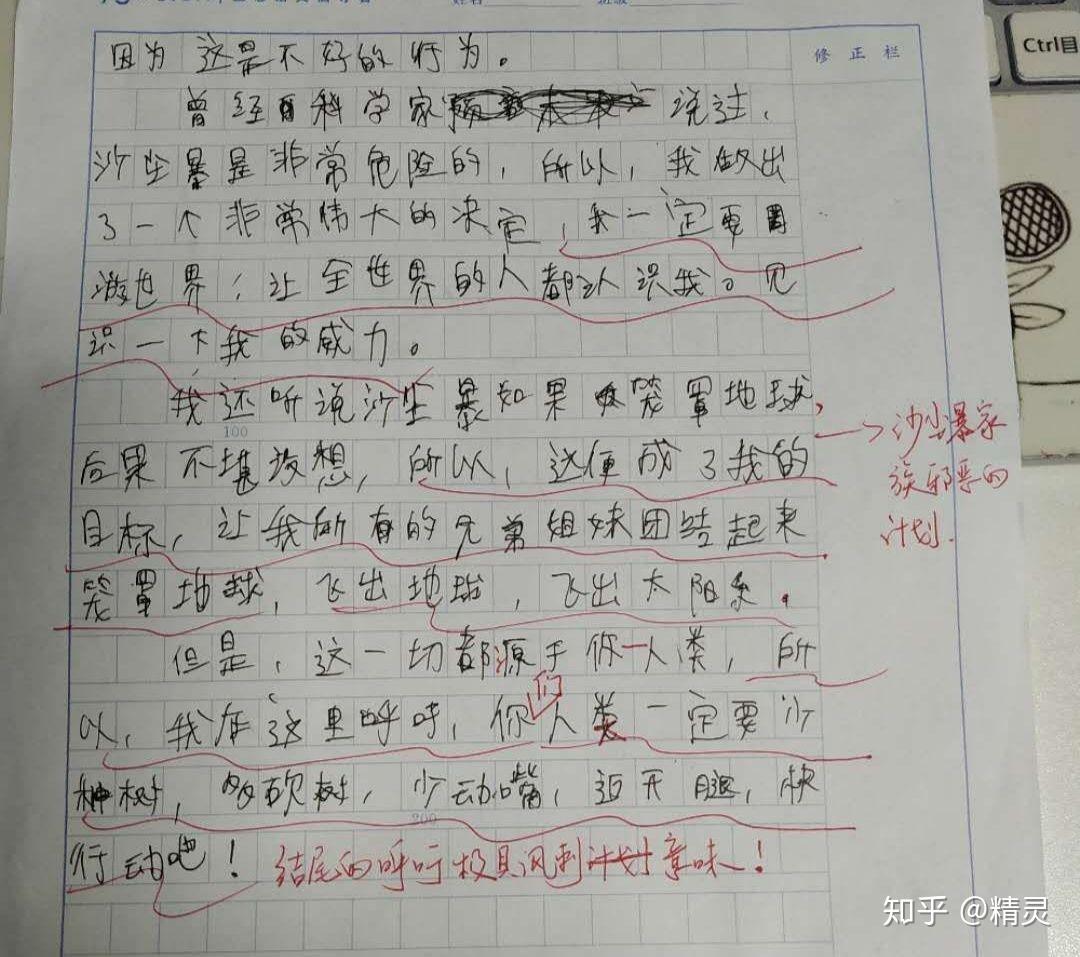 修正栏
Ctrl目
因为这是不好的行为。
曾经有科学家说过，
沙尘暴是非常危险的，所以，我做出
了一个非常伟大的决定，我一定要周
游世界，让全世界的人都认识我。见
识一下我的威力。
我还听说沙尘暴如果笼罩地球，
100
后果不堪设想，所以，这便成了我的
目标，让我所有的兄弟姐妹团结起来
笼罩地球，飞出地球，飞出太阳系。
→沙尘暴家
族邪恶的
计划.
但是，这一切都源于你一人类，所
以，我在这里呼吁，你们人类一定要少
种树，多砍树，少动嘴，迈开腿，快
200
行动吧！结尾的呼吁极具讽刺意味！
知乎 @精灵